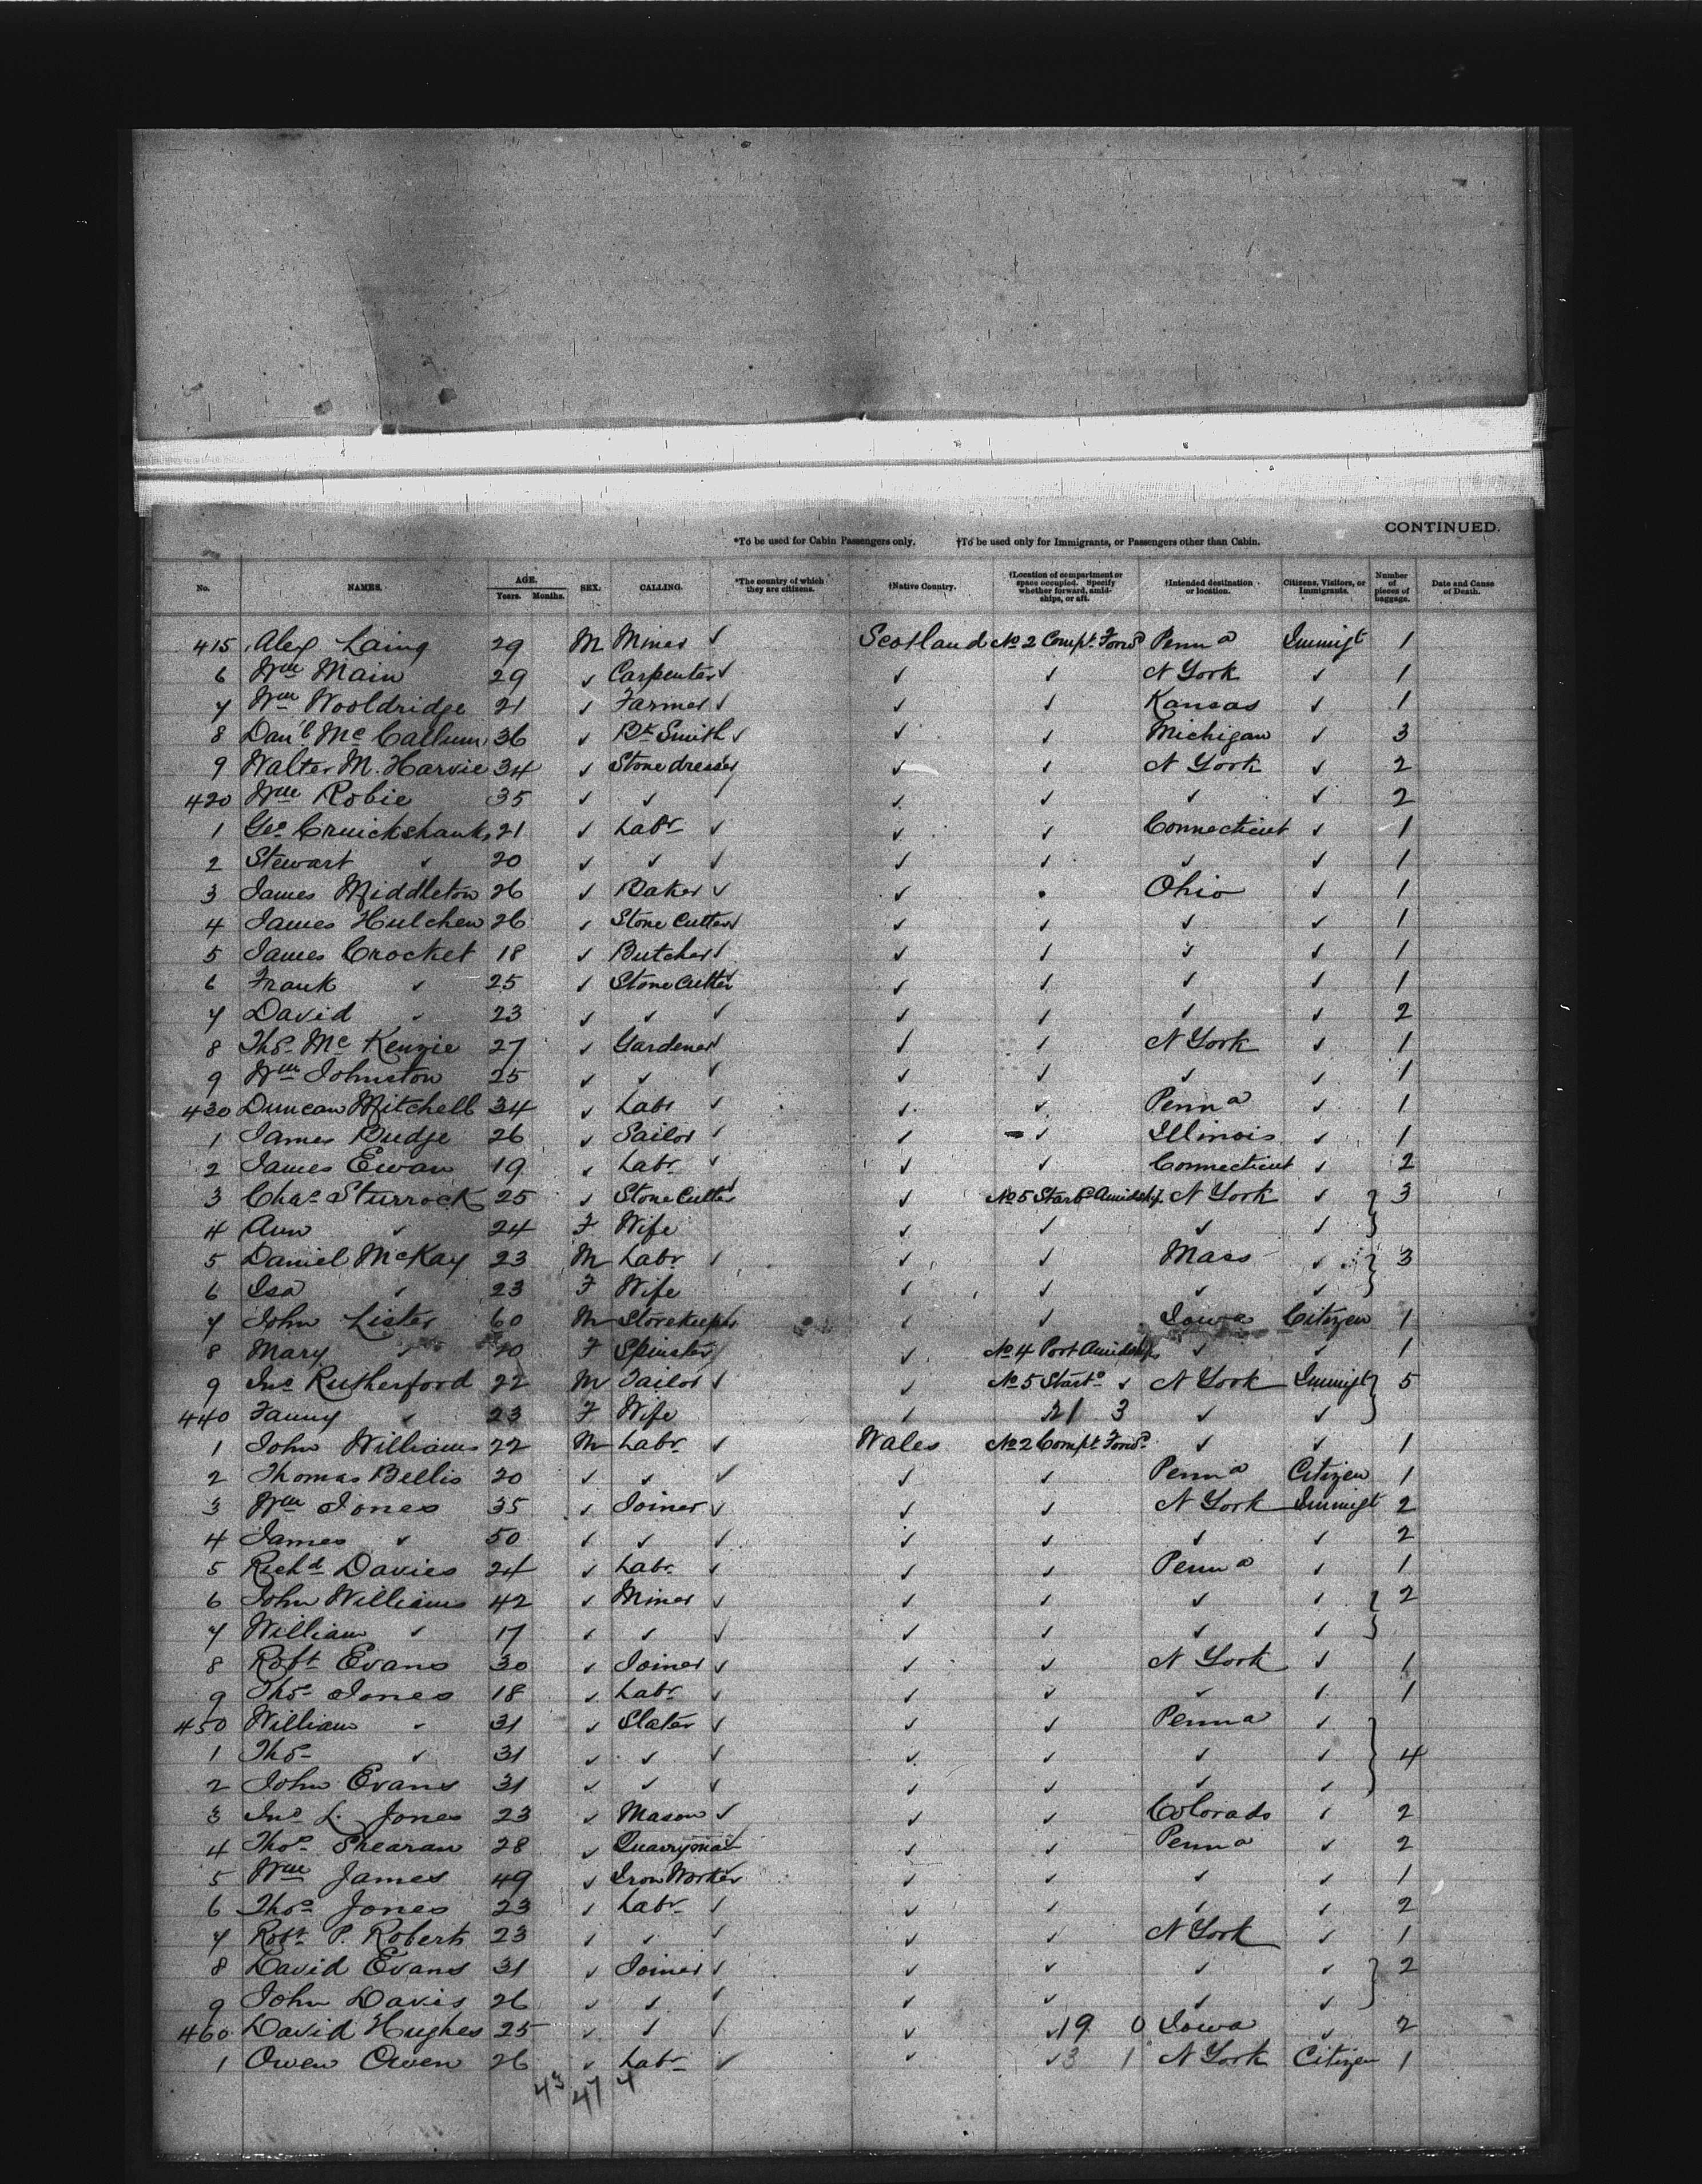 CONTINUED.
*To be used for Cabin Passengers only. †To be used only for Immigrants, or Passengers other than Cabin.
No. NAMES. AGE. Years. Months. SEX. CALLING. *The country of which they are citizens. †Native Country. †Location of compartment or space occupied. Specify whether forward, amidships, or aft. †Intended destination or location. Citizens, Visitors, or Immigrants. Number of pieces of baggage. Date and Cause of Death.
415 Alex Laing 29 M Miner ✓ Scotland No 2 Compt. Forwd Penna Immigt 1
6 Wm Main 29 ✓ Carpenter ✓ ✓ ✓ N York ✓ 1
7 Wm Wooldridge 21 ✓ Farmer ✓ ✓ ✓ Kansas ✓ 1
8 Danl McCallum 36 ✓ Bk Smith ✓ ✓ ✓ Michigan ✓ 3
9 Walter M. Harvie 34 ✓ Stone dresser ✓ ✓ N York ✓ 2
420 Wm Robie 35 ✓ ✓ ✓ ✓ ✓ ✓ ✓ 2
1 Geo Cruickshank 21 ✓ Labr ✓ ✓ ✓ Connecticut ✓ 1
2 Stewart ✓ 20 ✓ ✓ ✓ ✓ ✓ ✓ ✓ 1
3 James Middleton 26 ✓ Baker ✓ ✓ Ohio ✓ 1
4 James Hulchen 26 ✓ Stone Cutter ✓ ✓ ✓ ✓ ✓ 1
5 James Crocket 18 ✓ Butcher ✓ ✓ ✓ ✓ ✓ 1
6 Frank ✓ 25 ✓ Stone Cutter ✓ ✓ ✓ ✓ ✓ 1
7 David ✓ 23 ✓ ✓ ✓ ✓ ✓ ✓ ✓ 2
8 Thos McKenzie 27 ✓ Gardener ✓ ✓ ✓ N York ✓ 1
9 Wm Johnston 25 ✓ ✓ ✓ ✓ ✓ ✓ ✓ 1
430 Duncan Mitchell 34 ✓ Labr ✓ ✓ ✓ Penna ✓ 1
1 James Budge 26 ✓ Sailor ✓ ✓ ✓ Illinois ✓ 1
2 James Ewan 19 ✓ Labr ✓ ✓ ✓ Connecticut ✓ 2
3 Chas Sturrock 25 ✓ Stone Cutter ✓ ✓ No 5 Starbd Amidship N York ✓ 3
4 Ann ✓ 24 F Wife ✓ ✓ ✓ ✓
5 Daniel McKay 23 M Labr ✓ ✓ ✓ Mass ✓ 3
6 Isa ✓ 23 F Wife ✓ ✓ ✓ ✓
7 John Lister 60 M Storekeeper ✓ ✓ ✓ Iowa Citizen 1
8 Mary ✓ 20 F Spinster ✓ No 4 Port Amidships ✓ ✓ 1
9 Jno Rutherford 22 M Tailor ✓ ✓ No 5 Starbd ✓ N York Immigt 5
440 Fanny ✓ 23 F Wife ✓ 21 3 ✓ ✓
1 John Williams 22 M Labr ✓ Wales No 2 Compt Forwd ✓ ✓ 1
2 Thomas Bellis 20 ✓ ✓ ✓ ✓ ✓ Penna Citizen 1
3 Wm Jones 35 ✓ Joiner ✓ ✓ ✓ N York Immigt 2
4 James ✓ 50 ✓ ✓ ✓ ✓ ✓ ✓ ✓ 2
5 Richd Davies 24 ✓ Labr ✓ ✓ ✓ Penna ✓ 1
6 John Williams 42 ✓ Miner ✓ ✓ ✓ ✓ ✓ 2
7 William ✓ 17 ✓ ✓ ✓ ✓ ✓ ✓ ✓
8 Robt Evans 30 ✓ Joiner ✓ ✓ ✓ N York ✓ 1
9 Thos Jones 18 ✓ Labr ✓ ✓ ✓ ✓ ✓ 1
450 William ✓ 31 ✓ Slater ✓ ✓ ✓ Penna ✓
1 Thos ✓ 31 ✓ ✓ ✓ ✓ ✓ ✓ ✓ 4
2 John Evans 31 ✓ ✓ ✓ ✓ ✓ ✓ ✓
3 Jno L. Jones 23 ✓ Mason ✓ ✓ ✓ Colorado ✓ 2
4 Thos Shearan 28 ✓ Quarryman ✓ ✓ Penna ✓ 2
5 Wm James 49 ✓ Iron Worker ✓ ✓ ✓ ✓ 1
6 Thos Jones 23 ✓ Labr ✓ ✓ ✓ ✓ ✓ 2
7 Robt P. Roberts 23 ✓ ✓ ✓ ✓ ✓ N York ✓ 1
8 David Evans 31 ✓ Joiner ✓ ✓ ✓ ✓ ✓ 2
9 John Davis 26 ✓ ✓ ✓ ✓ ✓ ✓ ✓
460 David Hughes 25 ✓ ✓ ✓ ✓ ✓ 19 0 Iowa ✓ 2
1 Owen Owen 26 ✓ Labr ✓ ✓ ✓ 3 1 N York Citizen 1
43 47 4